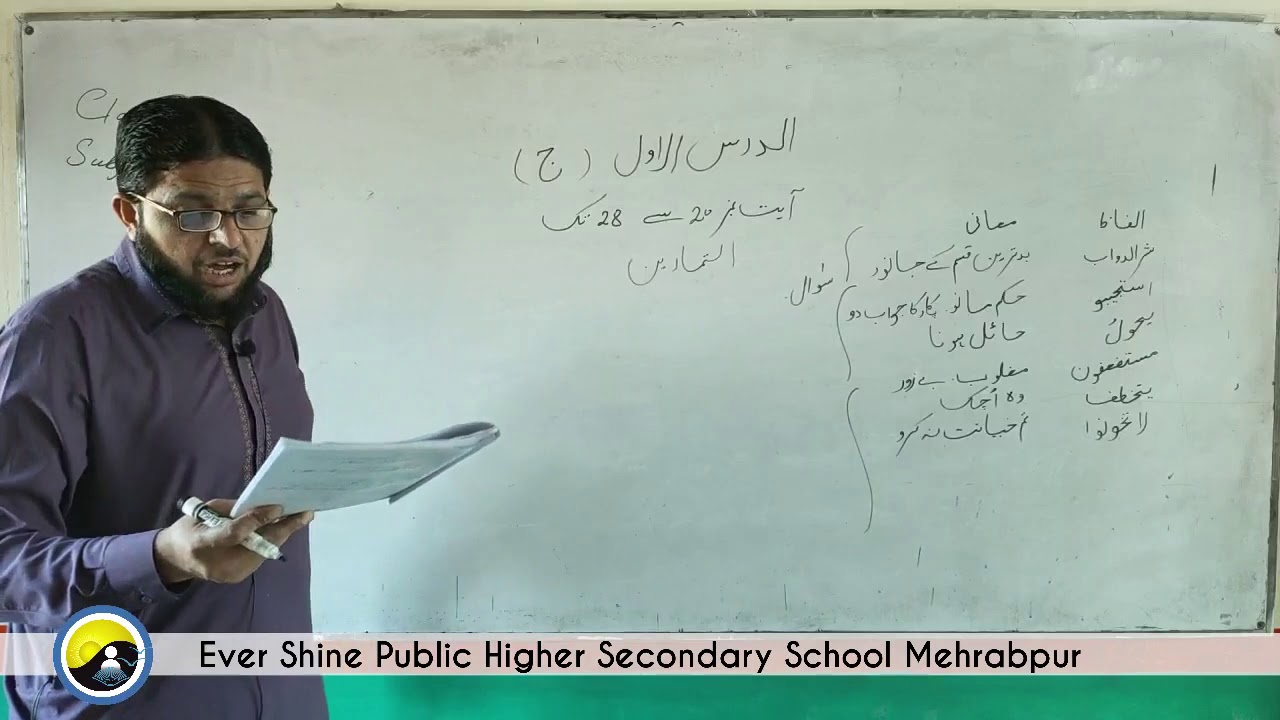 الدرس الاول (ج)
آیت نمبر 20 سے 28 تک
التمارین
الفاظ معانی
شر الدواب بدترین قسم کے جانور
سوال
استجیبو حکم مانو پکار کا جواب دو
یحولُ حائل ہونا
مستضعفون مغلوب بے زور
یتخطف وہ اُچک
لا تخونوا تم خیانت نہ کرو
Ever Shine Public Higher Secondary School Mehrabpur